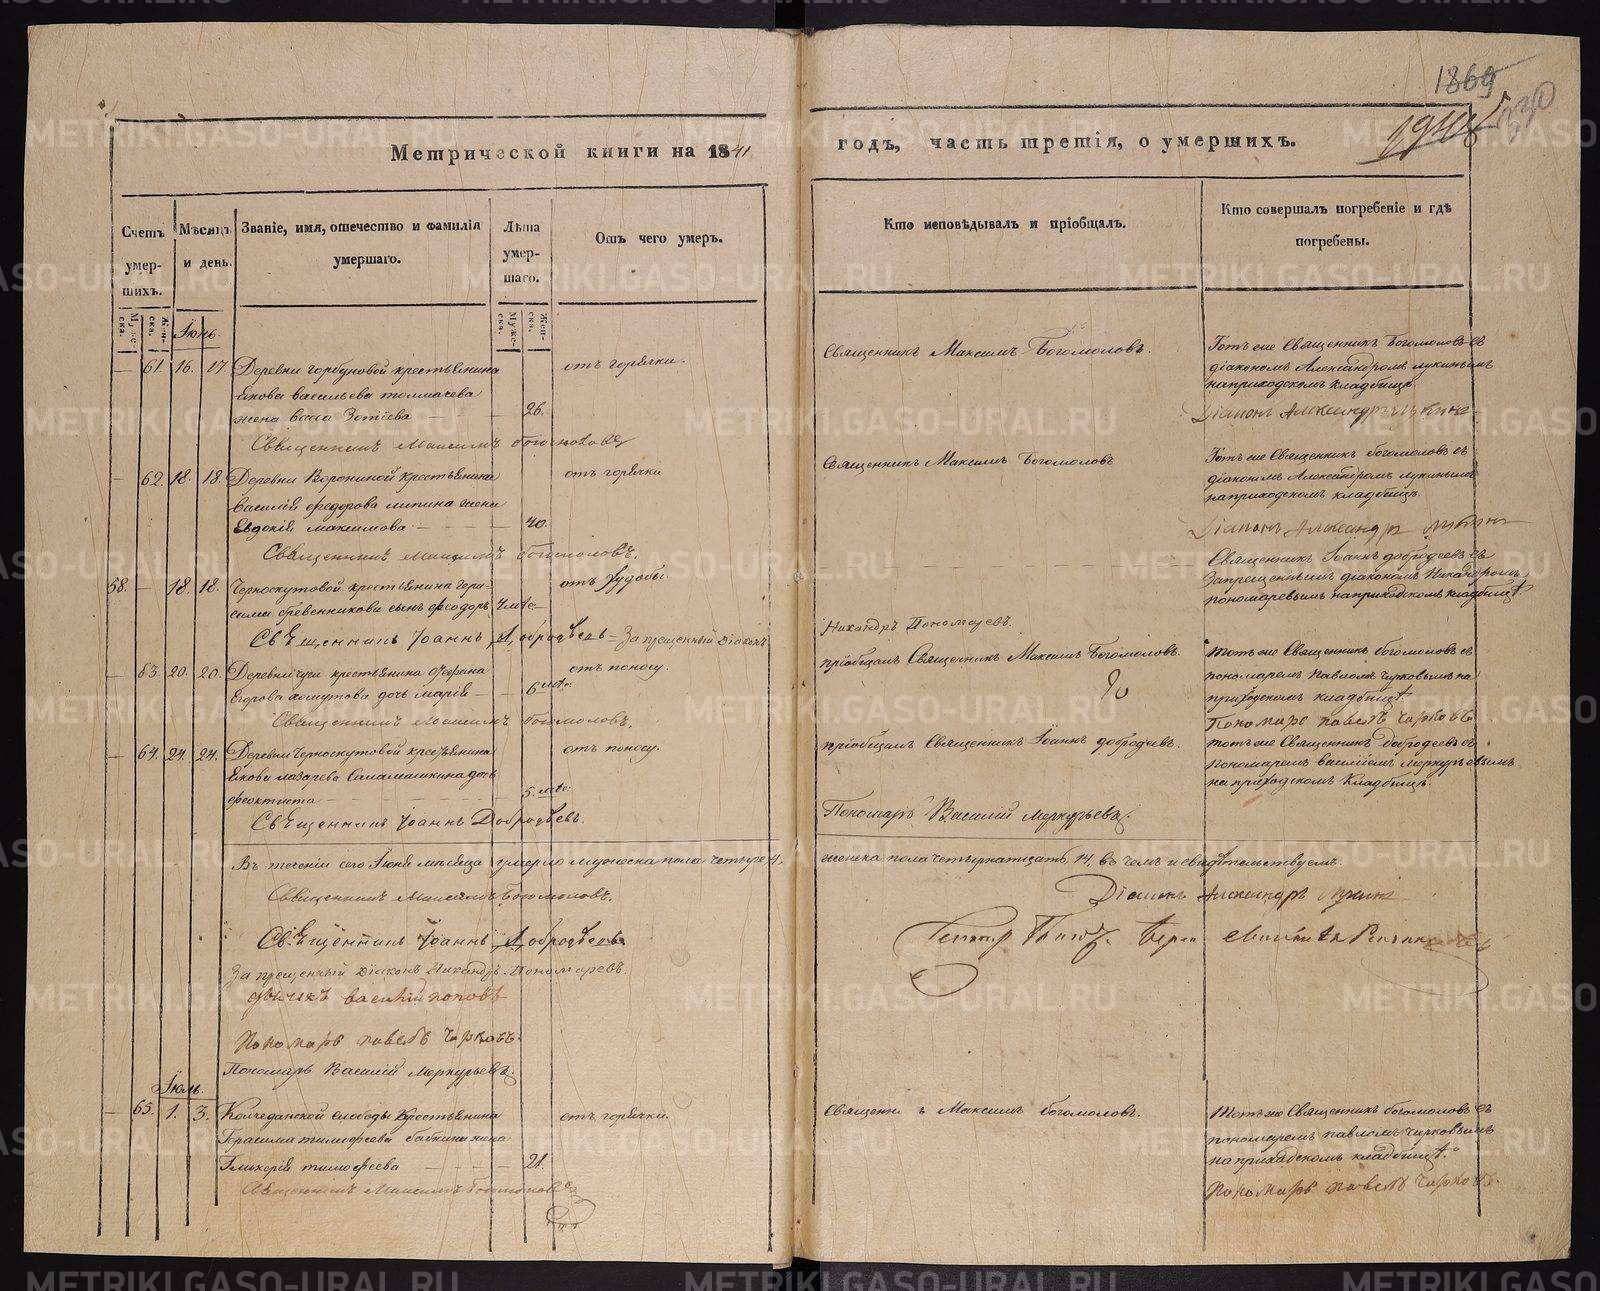 1869
Метрической книги на 1841
годъ, часть третія, о умершихъ.
Счетъ умер-шихъ.
Муже-ска.
Жен-ска.
Мѣсяцъ и день.
Званіе, имя, отечество и фамилія
умершаго.
Лѣта умер-шаго.
Муже-ска.
Жен-ска.
Отъ чего умеръ.
Кто исповѣдывалъ и пріобщалъ.
Кто совершалъ погребеніе и гдѣ
погребены.
Іюнь.
— 61 16. 17 Деревни горбуновой крестьянина
Якова васильева толмачева
жена васса Зотіева — — 26.
отъ горячки.
Священникъ Максимъ Богомоловъ.
Тотъ же Священникъ Богомоловъ съ
діакономъ Александромъ лукинымъ
наприходскомъ кладбищѣ
Діаконъ Александръ лукинъ
Священникъ Максимъ богомоловъ
— 62. 18. 18. Деревни Ворониной крестьянина
василій федорова липина жена
Евдокія максимова — — — 40.
отъ горячки
Священникъ Максимъ Богомоловъ
Тотъ же Священникъ богомоловъ съ
діакономъ Александромъ лукинымъ
наприходскомъ кладбищѣ.
Діаконъ Александръ лукинъ
Священникъ Максимъ богомоловъ.
58. — 18. 18. Черноскутовой крестьянина гера-
сима гребенникова сынъ феодоръ 4 мѣс
отъ худобы
Священникъ Іоаннъ добродеевъ съ
Запрещеннымъ діакономъ Никандромъ
пономаревымъ наприходскомъ кладбищѣ
Священникъ Іоаннъ Добродѣевъ — Запрещенный Діаконъ
Никандръ Пономаревъ.
— 63. 20. 20. Деревни крестьянина
Егорова хомутова дочь марія — 6 мѣс
отъ поносу.
пріобщалъ Священникъ Максимъ Богомоловъ.
тотъ же Священникъ богомоловъ съ
пономаремъ павломъ чирковымъ на
приходскомъ кладбищѣ.
Пономарь павелъ чирковъ
Священникъ Максимъ богомоловъ.
— 64. 24. 24. Деревни Черноскутовой крестьянина
Якова лазарева Саламашкина дочь
феоктиста — — — 5. мѣс:
отъ поносу.
пріобщалъ Священникъ Іоаннъ добродеевъ.
тотъ же Священникъ добродеевъ съ
пономаремъ василіемъ меркурьевымъ
на приходскомъ Кладбищѣ.
Священникъ Іоаннъ Добродѣевъ.
Пономарь Василій меркурьевъ.
Въ теченіи сего Іюня мѣсяца умерло мужеска пола четыре 4,
женска пола четырнатцать 14, въ чемъ и свидѣтельствуемъ.
Священникъ Максимъ Богомоловъ.
Діаконъ Александръ лукинъ
Священникъ Іоаннъ Добродѣевъ
Запрещенный Діаконъ Никандръ Пономаревъ.
василій поповъ
Пономарь павелъ чирковъ.
Пономарь Василій Меркурьевъ.
Іюль.
— 65. 1. 3. Колчеданской слободы Крестьянина
Герасима тимофеева бабкина жена
Гликерія тимофеева — — — 21.
отъ горячки.
Священникъ Максимъ богомоловъ.
Тотъ же Священникъ богомоловъ съ
пономаремъ павломъ чирковымъ
на приходскомъ кладбищѣ.
Пономарь павелъ чирковъ.
Священникъ Максимъ Богомоловъ
METRIKI.GASO-URAL.RU